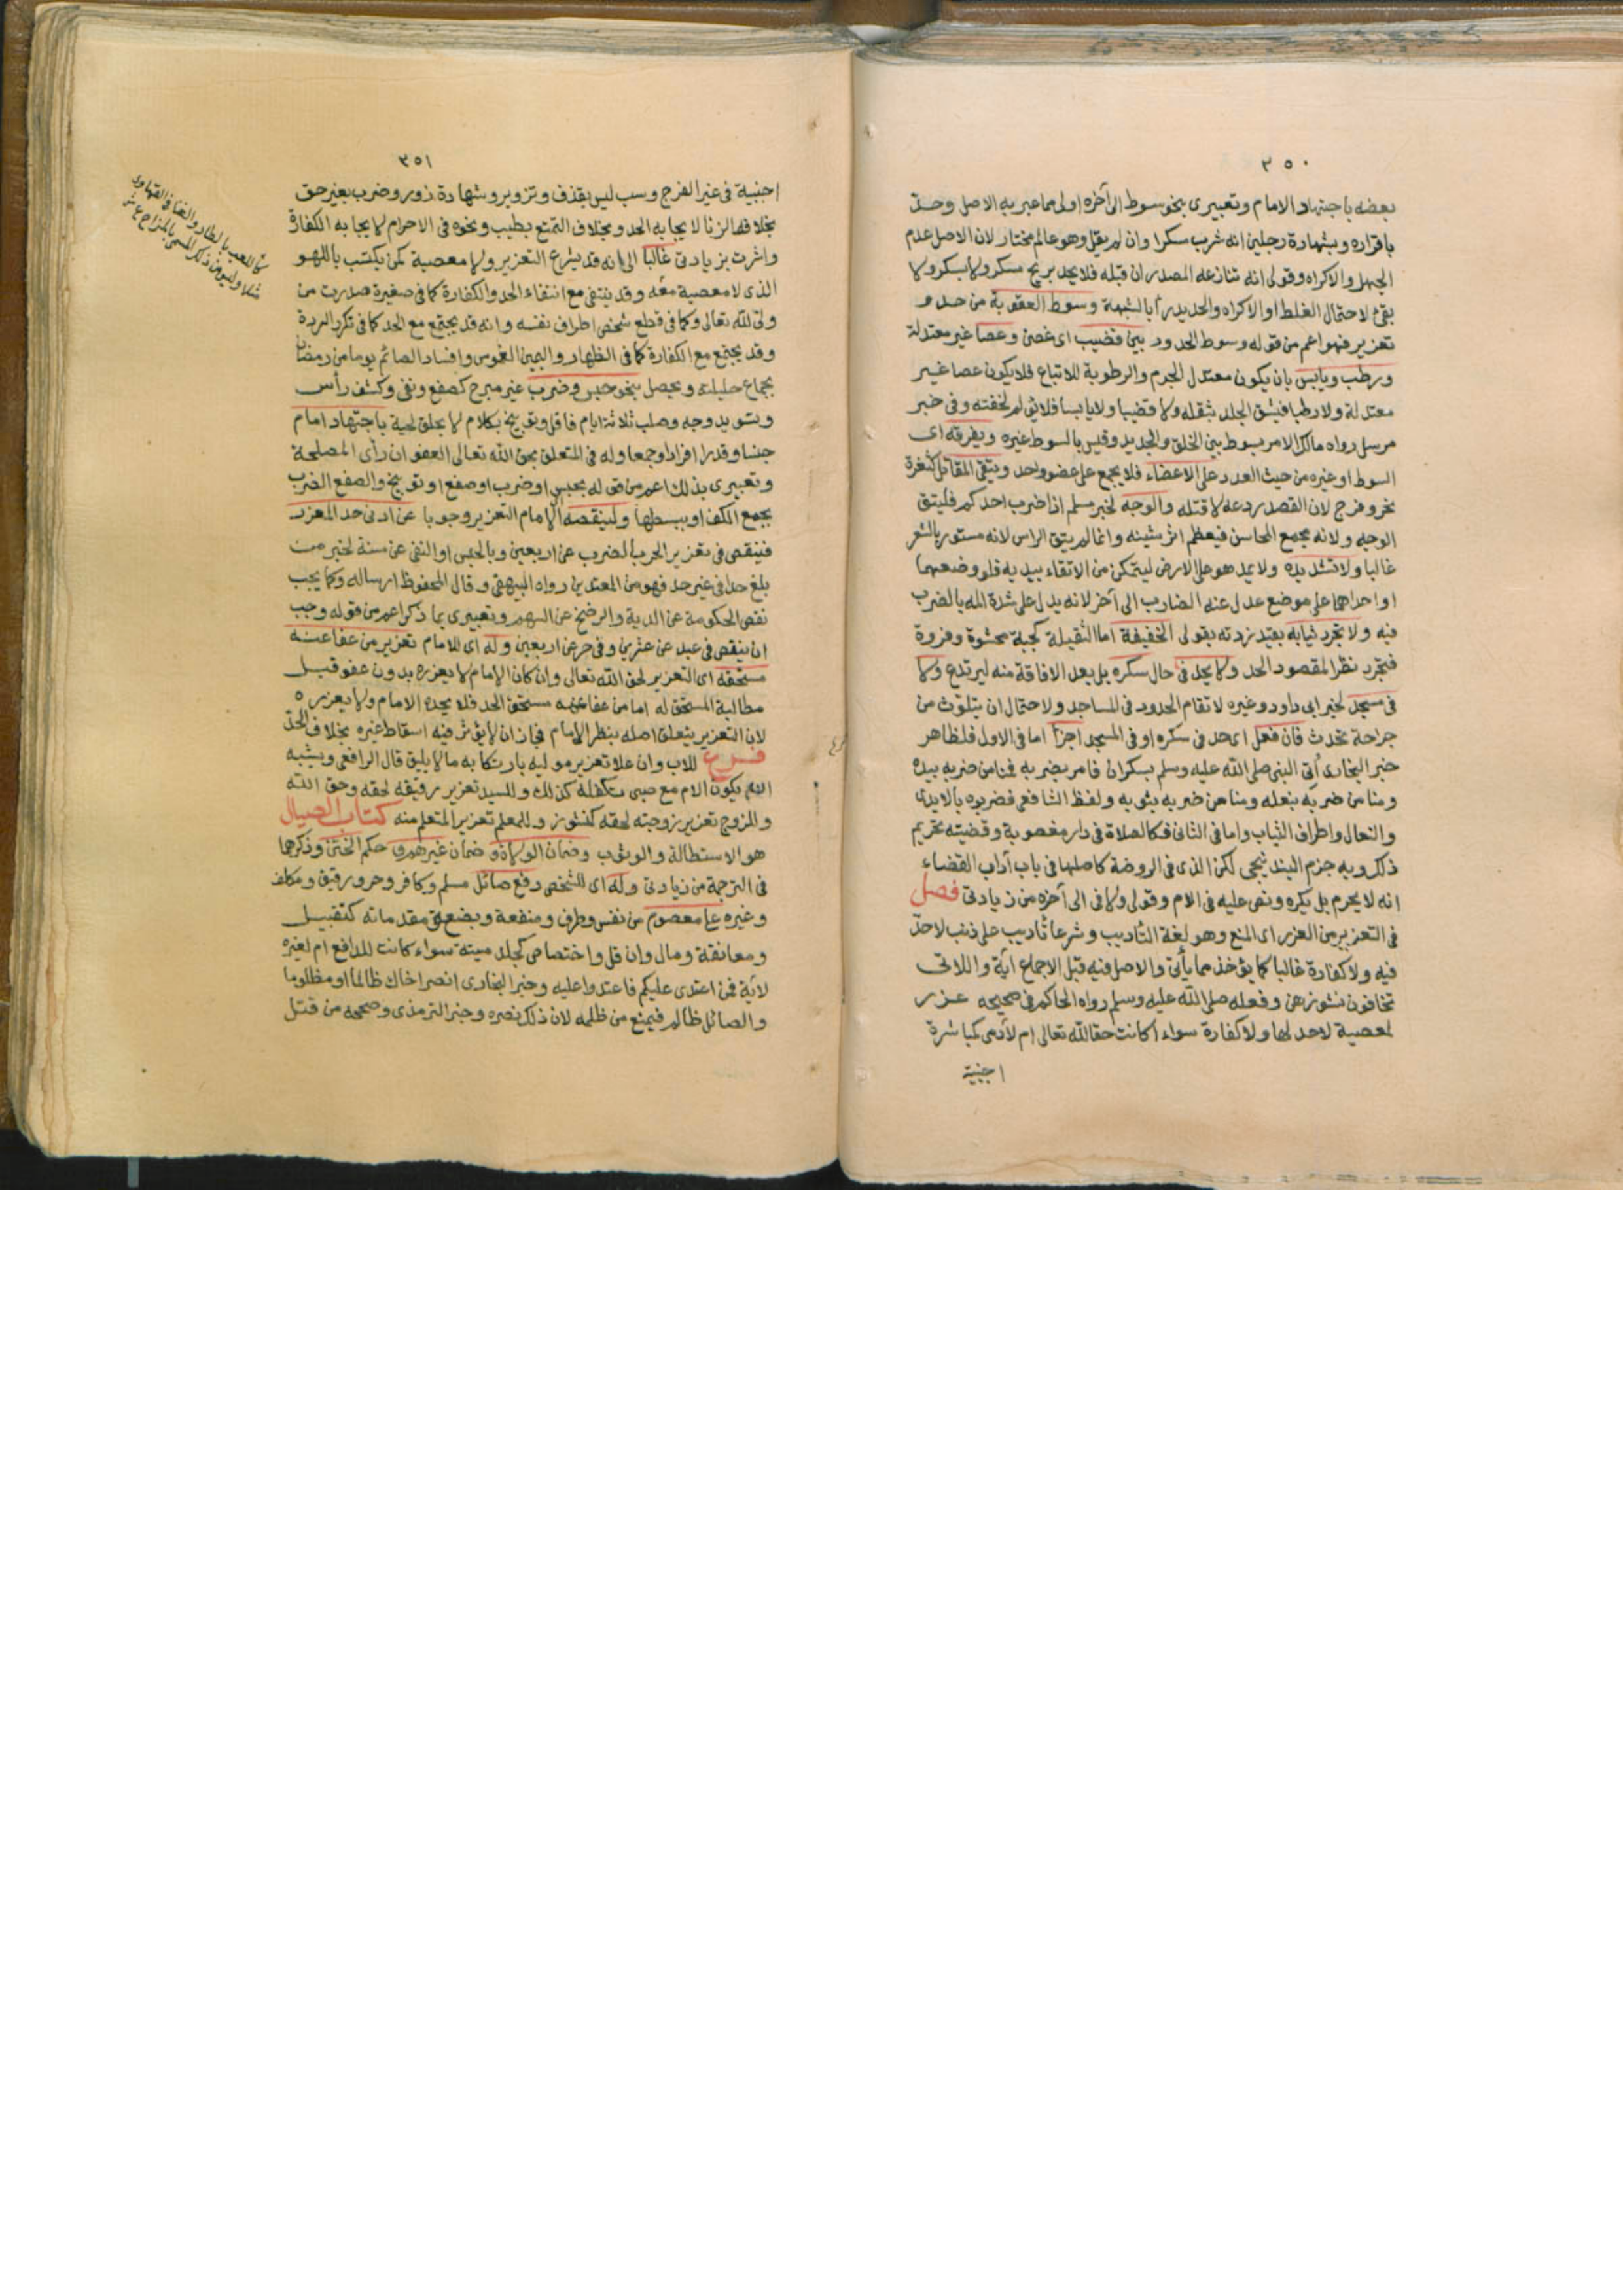 ٣٥٠
بعضه باجتهاد الامام وتعبيرى بنحو سوط الى آخره اولى مما عبر به الاصل وحدّ
باقراره وبشهادة رجلين انه شرب مسكرا وان لم يقل وهو عالم مختار لان الاصل عدم
الجهل والاكراه وقولى انه تنازعه المصدران قبله فلا يحد بريح مسكر ولا بسكر ولا
بقئ لاحتمال الغلط او الاكراه والحد يدرأ بالشبهة وسوط العقوبة من حد و
تعزير فهو اعم من قوله وسوط الحدود بين قضيب اى غصن وعصا غير معتدلة
ورطب ويابس بان يكون معتدل الجرم والرطوبة للاتباع فلا يكون عصا غير
معتدلة ولا رطبا فيشق الجلد بثقله ولا قضيبا ولا يابسا فلا يؤلم لخفته وفى خبر
مرسل رواه مالك الامر بسوط بين الخلق والجديد وقيس بالسوط غيره ويفرقه اى
السوط او غيره من حيث العدد على الاعضاء فلا يجمع على عضو واحد ويتقى المقاتل كثغرة
نحر وفرج لان القصد ردعه لا قتله والوجه لخبر مسلم اذا ضرب احدكم فليتق
الوجه ولانه مجمع المحاسن فيعظم اثر شينه وانما لم يتق الراس لانه مستور بالشعر
غالبا ولا تشد يده ولا يمد هو على الارض ليتمكن من الاتقاء بيديه فلو وضعهما
او احداهما على موضع عدل عنه الضارب الى آخر لانه يدل على شدة المه بالضرب
فيه ولا تجرد ثيابه بقيد زدته بقولى الخفيفة اما الثقيلة كجبة محشوة وفروة
فتجرد نظرا لمقصود الحد ولا يحد فى حال سكره بل بعد الافاقة منه ليرتدع ولا
فى مسجد لخبر ابى داود وغيره لا تقام الحدود فى المساجد ولاحتمال ان يتلوث من
جراحة تحدث فان فعل اى حد فى سكره او فى المسجد اجزأ اما فى الاول فلظاهر
خبر البخارى أتى النبى صلى الله عليه وسلم بسكران فامر بضربه فمنا من ضربه بيده
ومنا من ضربه بنعله ومنا من ضربه بثوبه ولفظ الشافعى فضربوه بالايدى
والنعال واطراف الثياب واما فى الثانى فكالصلاة فى دار مغصوبة وقضيته تحريم
ذلك وبه جزم البندنيجى لكن الذى فى الروضة كاصلها فى باب آداب القضاء
انه لا يحرم بل يكره ونص عليه فى الام وقولى ولا فى الى آخره من زيادتى فصل
فى التعزير من العزر اى المنع وهو لغة التاديب وشرعا تاديب على ذنب لا حدّ
فيه ولا كفارة غالبا كما يؤخذ مما يأتى والاصل فيه قبل الاجماع اية واللاتى
تخافون نشوزهن وفعله صلى الله عليه وسلم رواه الحاكم فى صحيحه عزر
لمعصية لا حد لها ولا كفارة سواء أكانت حقا لله تعالى ام لآدمى كمباشرة
اجنبية
٣٥١
اجنبية فى غير الفرج وسب ليس بقذف وتزوير وشهادة زور وضرب بغير حق
بخلاف الزنا لايجابه الحد وبخلاف التمتع بطيب ونحوه فى الاحرام لايجابه الكفارة
واشرت بزيادتى غالبا الى انه قد يشرع التعزير ولا معصية كمن يكتسب باللهو
الذى لا معصية معه وقد ينتفى مع انتفاء الحد والكفارة كما فى صغيرة صدرت من
ولى لله تعالى وكما فى قطع شخص اطراف نفسه وانه قد يجتمع مع الحد كما فى تكرر الردة
وقد يجتمع مع الكفارة كما فى الظهار واليمين الغموس وافساد الصائم يوما من رمضان
بجماع حليلته ويحصل بنحو حبس وضرب غير مبرح كصفع ونفى وكشف رأس
وتسويد وجه وصلب ثلاثة ايام فاقل وتوبيخ بكلام لا بحلق لحية باجتهاد امام
جنسا وقدرا افرادا وجمعا وله فى المتعلق بحق الله تعالى العفو ان رأى المصلحة
وتعبيرى بذلك اعم من قوله بحبس او ضرب او صفع او توبيخ والصفع الضرب
بجمع الكف او ببسطها ولينقصه الامام التعزير وجوبا عن ادنى حد المعزر
فينقص فى تعزير الحر بالضرب عن اربعين وبالحبس او النفى عن سنة لخبر من
بلغ حدا فى غير حد فهو من المعتدين رواه البيهقى وقال المحفوظ ارساله وكما يجب
نقص الحكومة عن الدية والرضخ عن السهم وتعبيرى بما ذكر اعم من قوله وجب
ان ينقص فى عبد عن عشرين وفى حر عن اربعين وله اى للامام تعزير من عفا عنه
مستحقه اى التعزير لحق الله تعالى وان كان الامام لا يعزره بدون عفو قبل
مطالبة المستحق له اما من عفا عنه مستحق الحد فلا يحده الامام ولا يعزره
لان التعزير يتعلق اصله بنظر الامام فجاز ان لا يؤثر فيه اسقاط غيره بخلاف الحدّ
فرع للاب وان علا تعزير موليه بارتكابه ما لا يليق قال الرافعى ويشبه
ان يكون الام مع صبى تكفله كذلك وللسيد تعزير رقيقه لحقه وحق الله
والزوج تعزير زوجته لحقه كنشوز وللمعلم تعزير المتعلم منه كتاب الصيال
هو الاستطالة والوثوب وضمان الولاة وضمان غيرهم وحكم الختن وذكرهما
فى الترجمة من زيادتى وله اى للشخص دفع صائل مسلم وكافر وحر ورقيق ومكلف
وغيره على معصوم من نفس وطرف ومنفعة وبضع ومقدماته كتقبيل
ومعانقة ومال وان قل واختصاص كجلد ميتة سواء كانت للدافع ام لغيره
لاية فمن اعتدى عليكم فاعتدوا عليه وخبر البخارى انصر اخاك ظالما او مظلوما
والصائل ظالم فيمنع من ظلمه لان ذلك نصره وخبر الترمذى وصححه من قتل